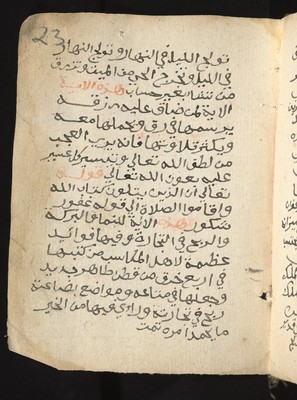 23
تولج الليل في النهار وتولج النهار
في الليل وتخرج الحي من الميت وترزق
من تشاء بغير حساب هذه الاية
الاية لمن ضاق عليه رزقه
يرسمها في رق ويحملها معه
ويكثر تلاوتها فانه يرى العجب
من لطف الله تعالى وتيسير كل عسير
عليه بعون الله تعالى قوله
تعالى ان الذين يتلون كتاب الله
واقاموا الصلاة الى قوله غفور
شكور هذه الاية للنماء والبركة
والربح في التجارة وفيها فوائد
عظيمة لاهل المكاسب من كتبها
في اربع خرق من قطن طاهر جديد
وجعلها في متاعه ومواضع بضاعته
ربح في تجارته وراى فيها من الخير
ما يحمد امره تمت